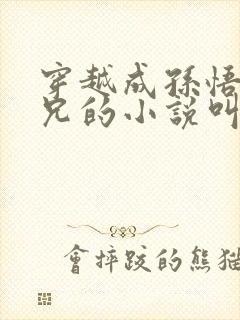 穿越成孫悟
兄的小說叫
會摔跤的熊猫